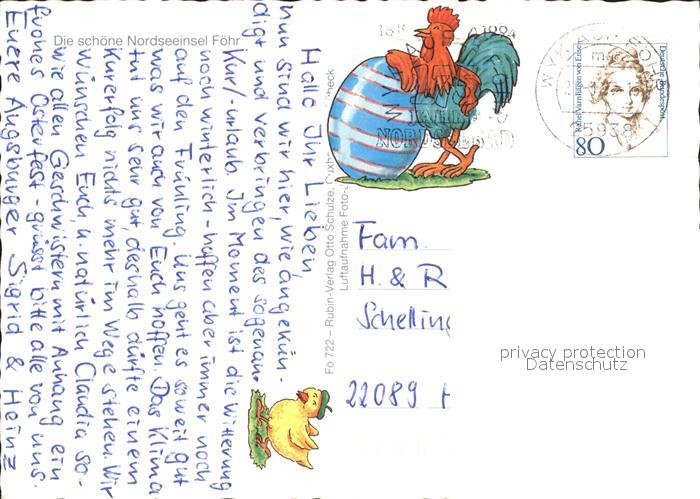 Die schöne Nordseeinsel Föhr
Hallo Ihr Lieben,
nun sind wir hier, wie angekün-
digt und verbringen des sogenan.
Kur/urlaub. Im Moment ist die Witterung
noch winterlich - hoffen aber immer noch
auf den Frühling. Uns geht es soweit gut
was wir auch von Euch hoffen. Das Klima
tut uns sehr gut, deshalb dürfte einem
Kurerfolg nichts mehr im Wege stehen. Wir
Wünschen Euch, u. natürlich Claudia so-
wie allen Geschwistern mit Anhang ein
frohes Osterfest - grüsst bitte alle von uns.
Euere Augsburger Sigrid & Heinz
Fö 722 – Rubin-Verlag Otto Schulze,
Luftaufnahme Foto-
Fam.
H. & R
Schelling
22089 H
NORDSEEBAD
WYK
5938
Deutsche Bundespost
Rahel Varnhagen von Ense
80
privacy protection
Datenschutz